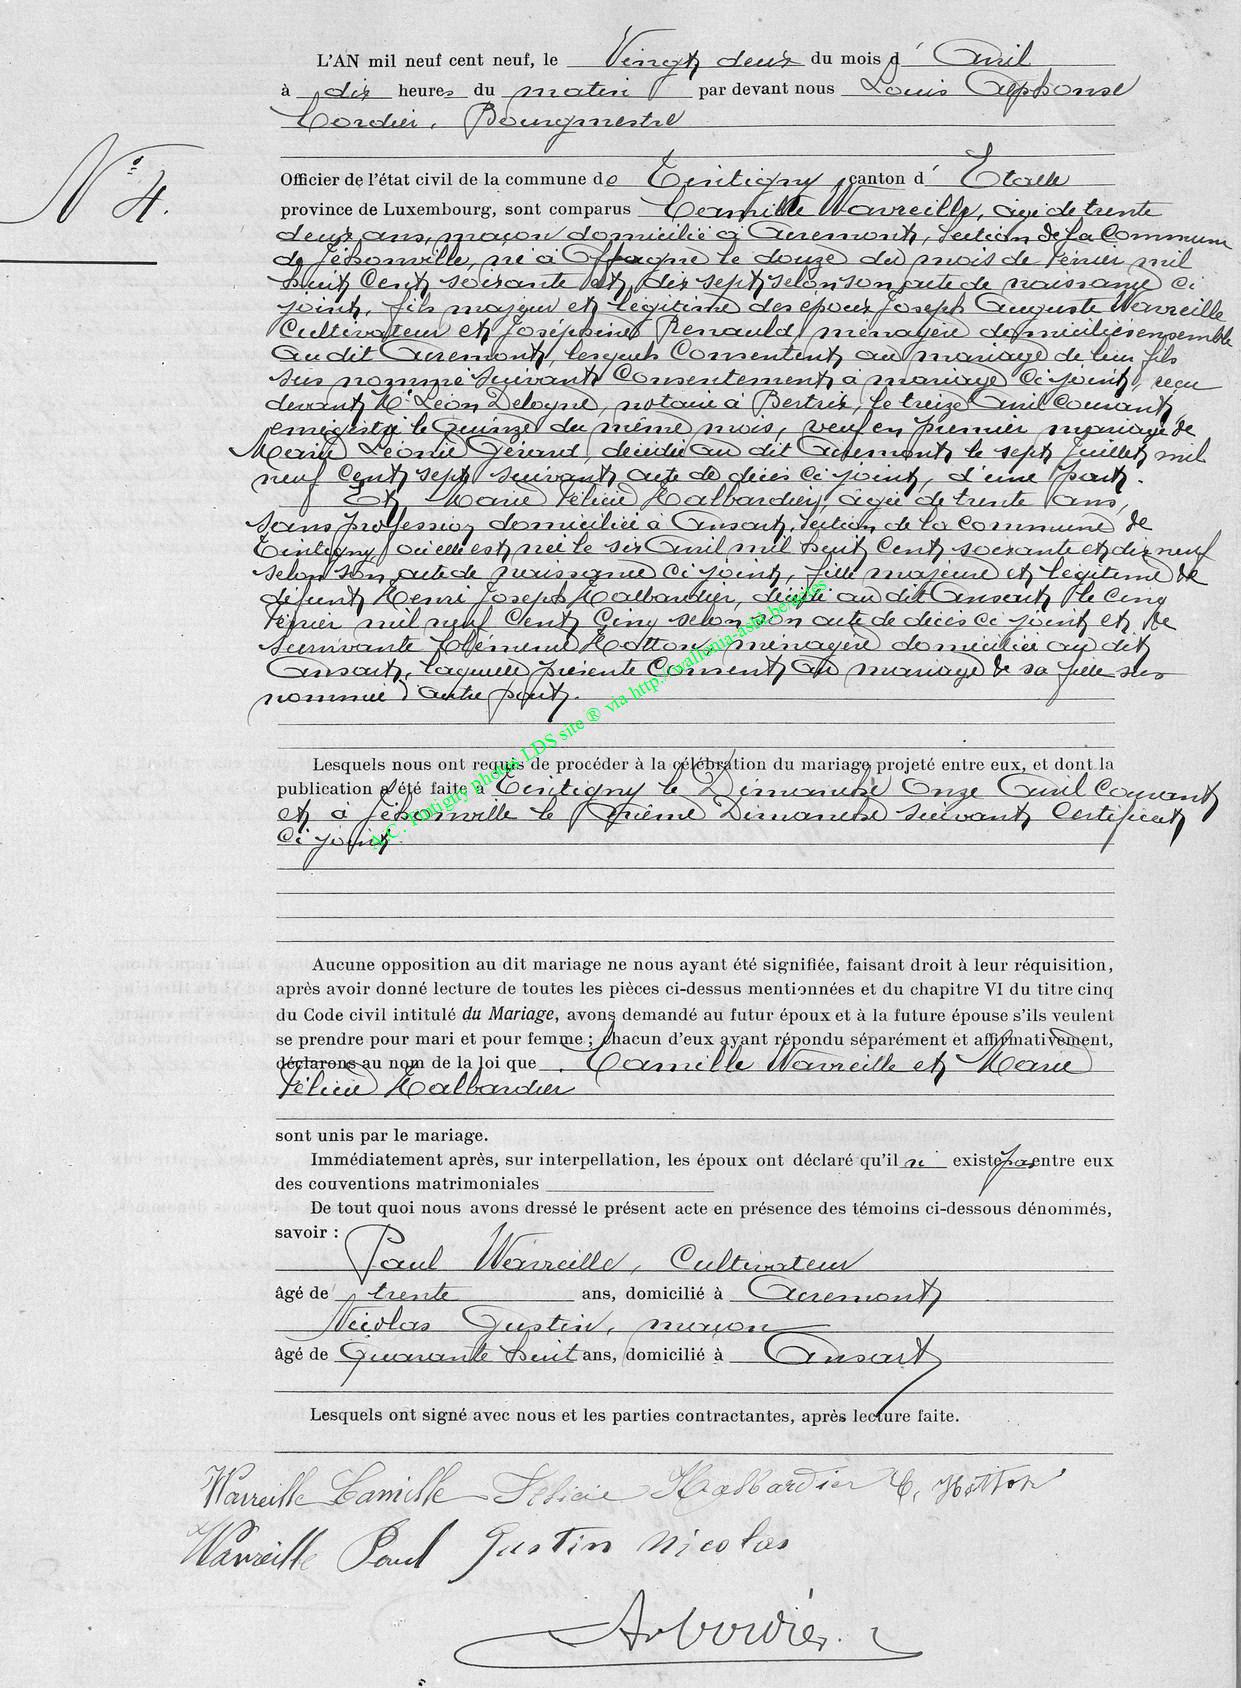 L'AN mil neuf cent neuf, le Vingt deux du mois d' Avril
à dix heures du matin par devant nous Louis Alphonse
Cordier, Bourgmestre
N° 4.
Officier de l'état civil de la commune de Tintigny, canton d' Etalle
province de Luxembourg, sont comparus Camille Wavreille, âgé de trente
deux ans, maçon domicilié à Acremont, section de la Commune
de Jéhonville, né à Offagne le douze du mois de février mil
huit Cent soixante et dix sept selon son acte de naissance ci
joint, fils majeur et légitime des époux Joseph Auguste Wavreille
Cultivateur et Joséphine Renauld ménagère domiciliés ensemble
au dit Acremont, lesquels Consentent au mariage de leur fils
sus nommé suivant Consentement à mariage ci joint, reçu
devant Me Léon Delogne, notaire à Bertrix, le treize Avril courant
enregistré le Quinze du même mois, veuf en premier mariage de
Marie Léonie Gérard, décédée au dit Acremont le sept Juillet mil
neuf cent sept suivant acte de décès ci joint, d'une part.
Et Marie Félicie Halbardier, âgée de trente ans,
sans profession domiciliée à Ansart, section de la Commune de
Tintigny, où elle est née le six Avril mil huit Cent soixante et dix neuf
selon son acte de naissance ci joint, fille majeure et légitime de
défunt Henri Joseph Halbardier, décédé au dit Ansart le cinq
février mil neuf Cent Cinq selon son acte de décès ci joint et de
survivante Clémence Hotton ménagère domiciliée au dit
Ansart, laquelle présente Consent au mariage de sa fille sus
nommée d'autre part.
Lesquels nous ont requis de procéder à la célébration du mariage projeté entre eux, et dont la
publication a été faite à Tintigny le Dimanche Onze Avril Courant
et à Jéhonville le même Dimanche suivant Certificat
ci joint.
A.C. Tintigny photos LDS site ® via http://wallonia-asbl.be/actes
Aucune opposition au dit mariage ne nous ayant été signifiée, faisant droit à leur réquisition,
après avoir donné lecture de toutes les pièces ci-dessus mentionnées et du chapitre VI du titre cinq
du Code civil intitulé du Mariage, avons demandé au futur époux et à la future épouse s'ils veulent
se prendre pour mari et pour femme ; chacun d'eux ayant répondu séparément et affirmativement,
déclarons au nom de la loi que Camille Wavreille et Marie
Félicie Halbardier
sont unis par le mariage.
Immédiatement après, sur interpellation, les époux ont déclaré qu'il n' existe pas entre eux
des couventions matrimoniales
De tout quoi nous avons dressé le présent acte en présence des témoins ci-dessous dénommés,
savoir :
Paul Wavreille, Cultivateur
âgé de trente ans, domicilié à Acremont
Nicolas Justin, maçon
âgé de Quarante huit ans, domicilié à Ansart
Lesquels ont signé avec nous et les parties contractantes, après lecture faite.
Wavreille Camille Félicie Halbardier C, Hotton
Wavreille Paul Justin Nicolas